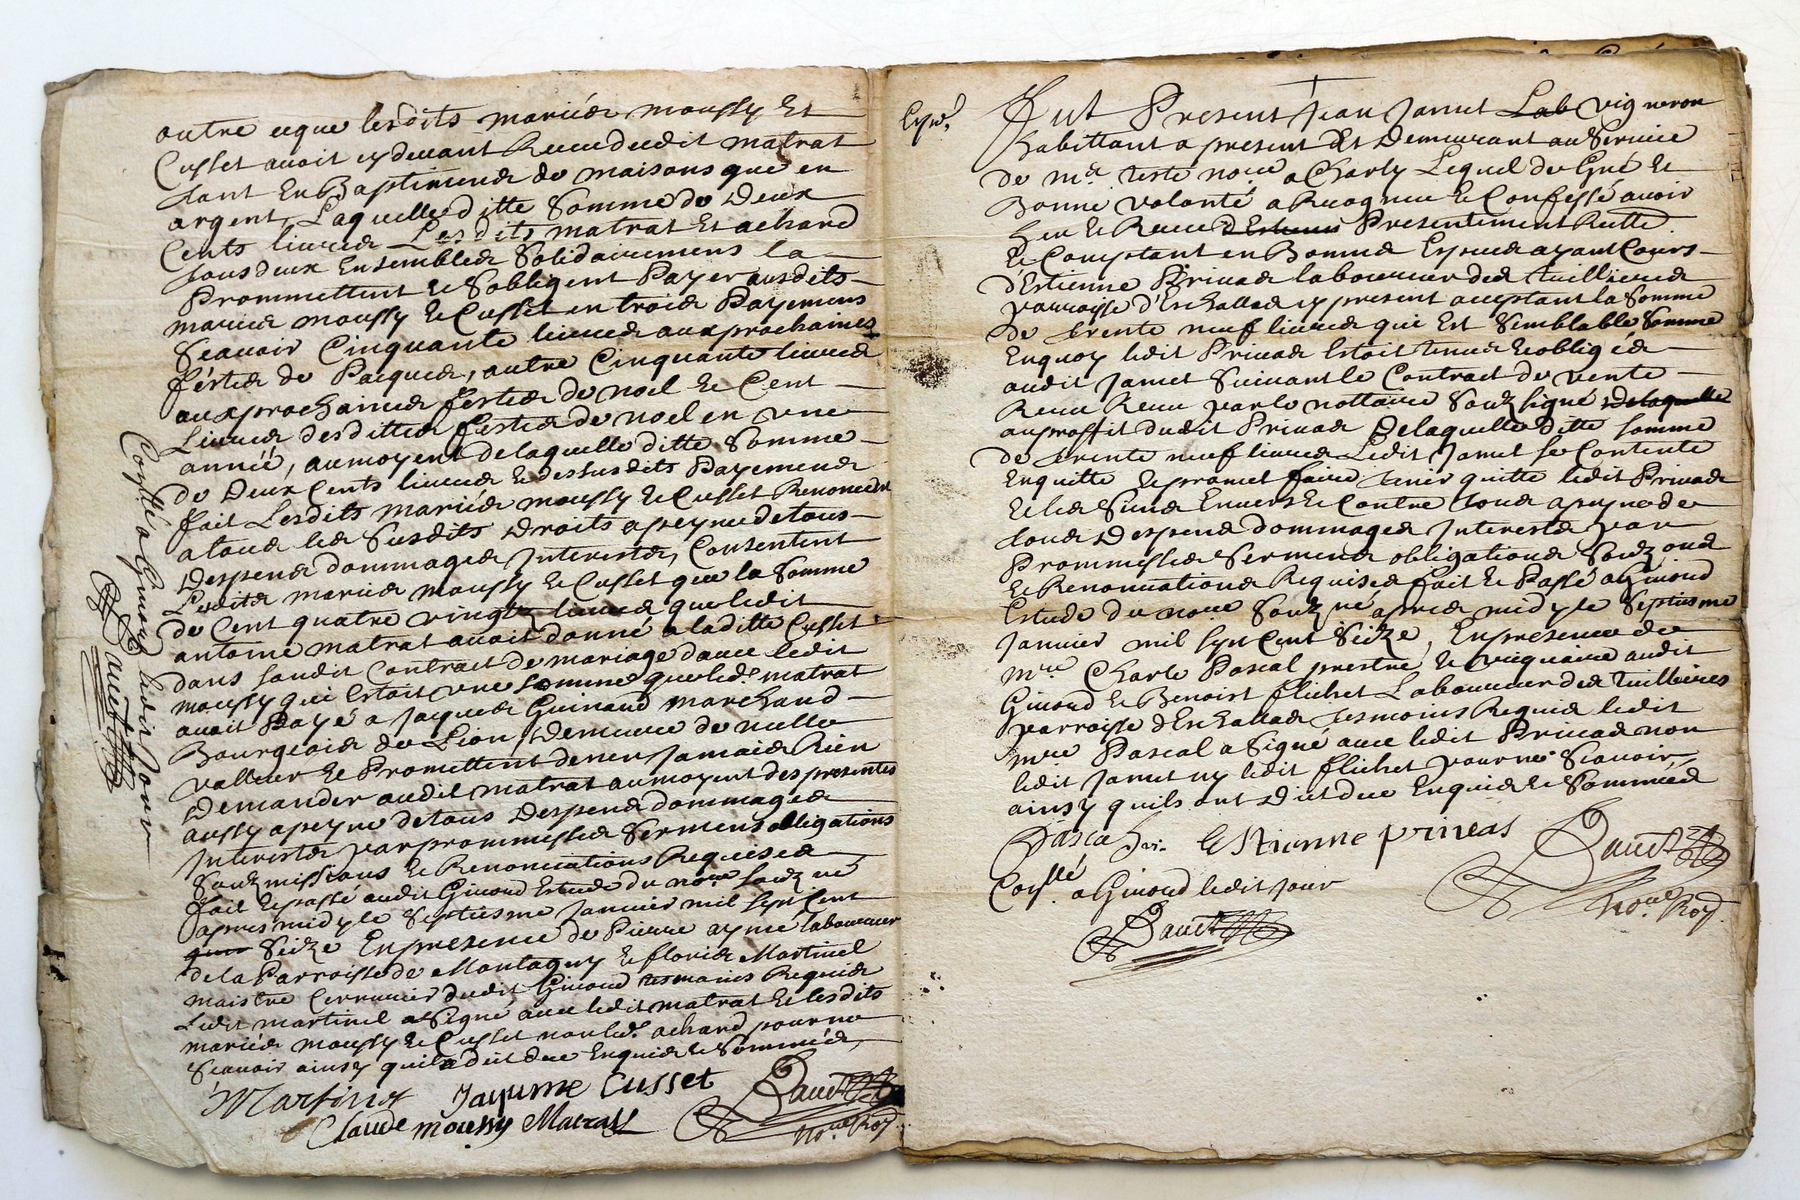 outre ceque lesdits mariés moussy Et
Cusset avoit cydevant Receu dudit matrat
tant En Baptimens de maisons que en
argent, Laquelle ditte Somme de Deux
Cents livres Lesdits matrat Et achard
tous deux Ensembles Solidairement la
Prommettent & Sobligent Payer ausdits
mariés moussy & Cusset en trois Payemens
Scavoir Cinquante livres aux prochaines
féstes de Pacques, autre Cinquante livres
aux prochaines festes de noel & Cent
Livres desdittes festes de noel en une
année, au moyent de laquelle ditte Somme
de Deux Cents livres & dessusdits Payemens
fait Lesdits mariés moussy & Cusset Renoncent
a tous les Susdits Droits a peyne de tous
Despens dommages Interests, Consentent
Lesdits mariés moussy & Cusset que la Somme
de Cent quatre vingts livres que ledit
antoine matrat avoit donné a laditte Cusset
dans sondit Contract de mariage dauec ledit
moussy qui Estoit une somme que led. matrat
avoit Payé a Jacques Guinand marchand
Bourgeois de Lion, Demeure de nulle
valleur & Promettent de nen Jamais Rien
Demander audit matrat au moyent des presentes
aussy a peyne de tous Despens dommages
Interests par prommesses Sermens obligations
Soubmissions & Renonciations Requises
fait & passé audit Givord Estude du nore soubz né
apres midy le Septiesme Janvier mil sept Cent
Seize En presence de Pierre aymé laboureur
de la Parroisse de Montagny & floris Martinel
maistre Cerrurier dudit Givord tesmoins Requis
Ledit martinel a Signé avec ledit matrat & lesdits
mariés moussy & Cusset non led. achard pour ne
Scavoir ainsy quil a dit due Enquis & Sommés,
Martinel Jaquême Cusset
Claude moussy Matrat
nore Roy.
Conllé a Givord ledit Jour
Eypé.
Fut Present Jean Jamet Lab vigneron
habittant a present Et Demeurant au Service
de mr. teste nore a Charly Lequel de Gré &
Bonne volonté a Recognu & Confessé avoir
heu & Receu Presentement Rulle.
& Comptant en Bonnes Especes ayant Cours
d'Estienne Privas laboureur des tuillieres
parroisse d'Eschallas cy present acceptant la Somme
de trente neuf livres qui Est Semblable Somme
En quoy ledit Privas Estoit tenus & obligés
audit Jamet Suivant le Contract de vente
Receu Receu par le nottaire Soubz signé Delaquelle
au proffit dudit Privas Delaquelle ditte somme
de trente neuf livres Ledit Jamet Se Contente
En quitte & promet faire tenir quitte ledit Privas
& les Siens Envers & Contre tous a peyne de
tous Despens dommages Interests par
Prommesses Sermens obligations Soubz ons
& Renonciations Requises fait & Passé a Givord
Estude du nore Soubz né apres midy le Septiesme
Janvier mil sept Cent Seize, En presence de
mre Charle Pascal prestre & vicquaire audit
Givord & Benoist flichet Laboureur des tuillieires
parroisse d'Eschallas tesmoins Requis ledit
mre Pascal a Signé avec ledit Privas non
ledit Jamet ny ledit flichet pour ne Scavoir
ainsy quils ont Dit due Enquis & Sommés
Pascal vi. Estienne privas
Conllé a Givord ledit Jour
nore Roy.